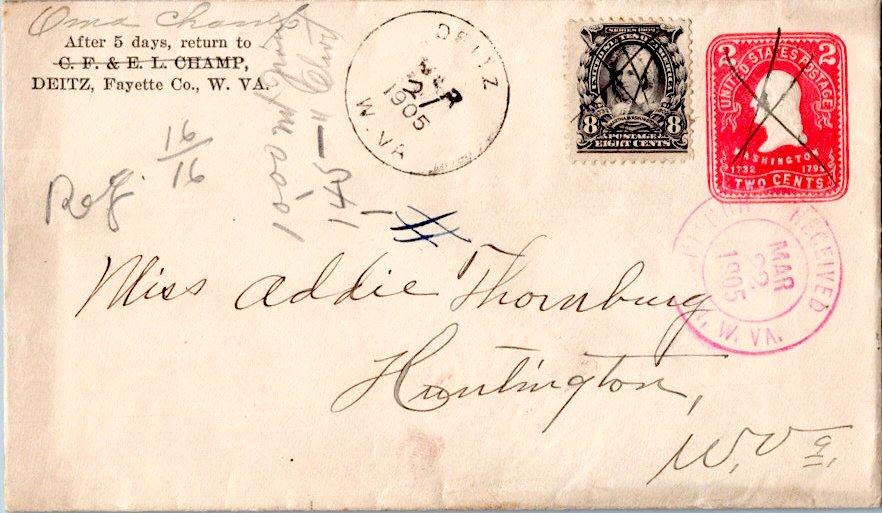 Oma Champ
After 5 days, return to
C. F. & E. L. CHAMP,
DEITZ, Fayette Co., W. VA.
DEITZ
MAR
21
1905
W. VA
SERIES 1902
UNITED STATES OF AMERICA
MARTHA WASHINGTON
8 POSTAGE 8
EIGHT CENTS
2 2
UNITED STATES POSTAGE
WASHINGTON
1732 1799
TWO CENTS
RECEIVED
MAR
22
1905
W. VA.
Reg.
16
16
145-11
Miss Addie Thornburg
Huntington,
W. Va.